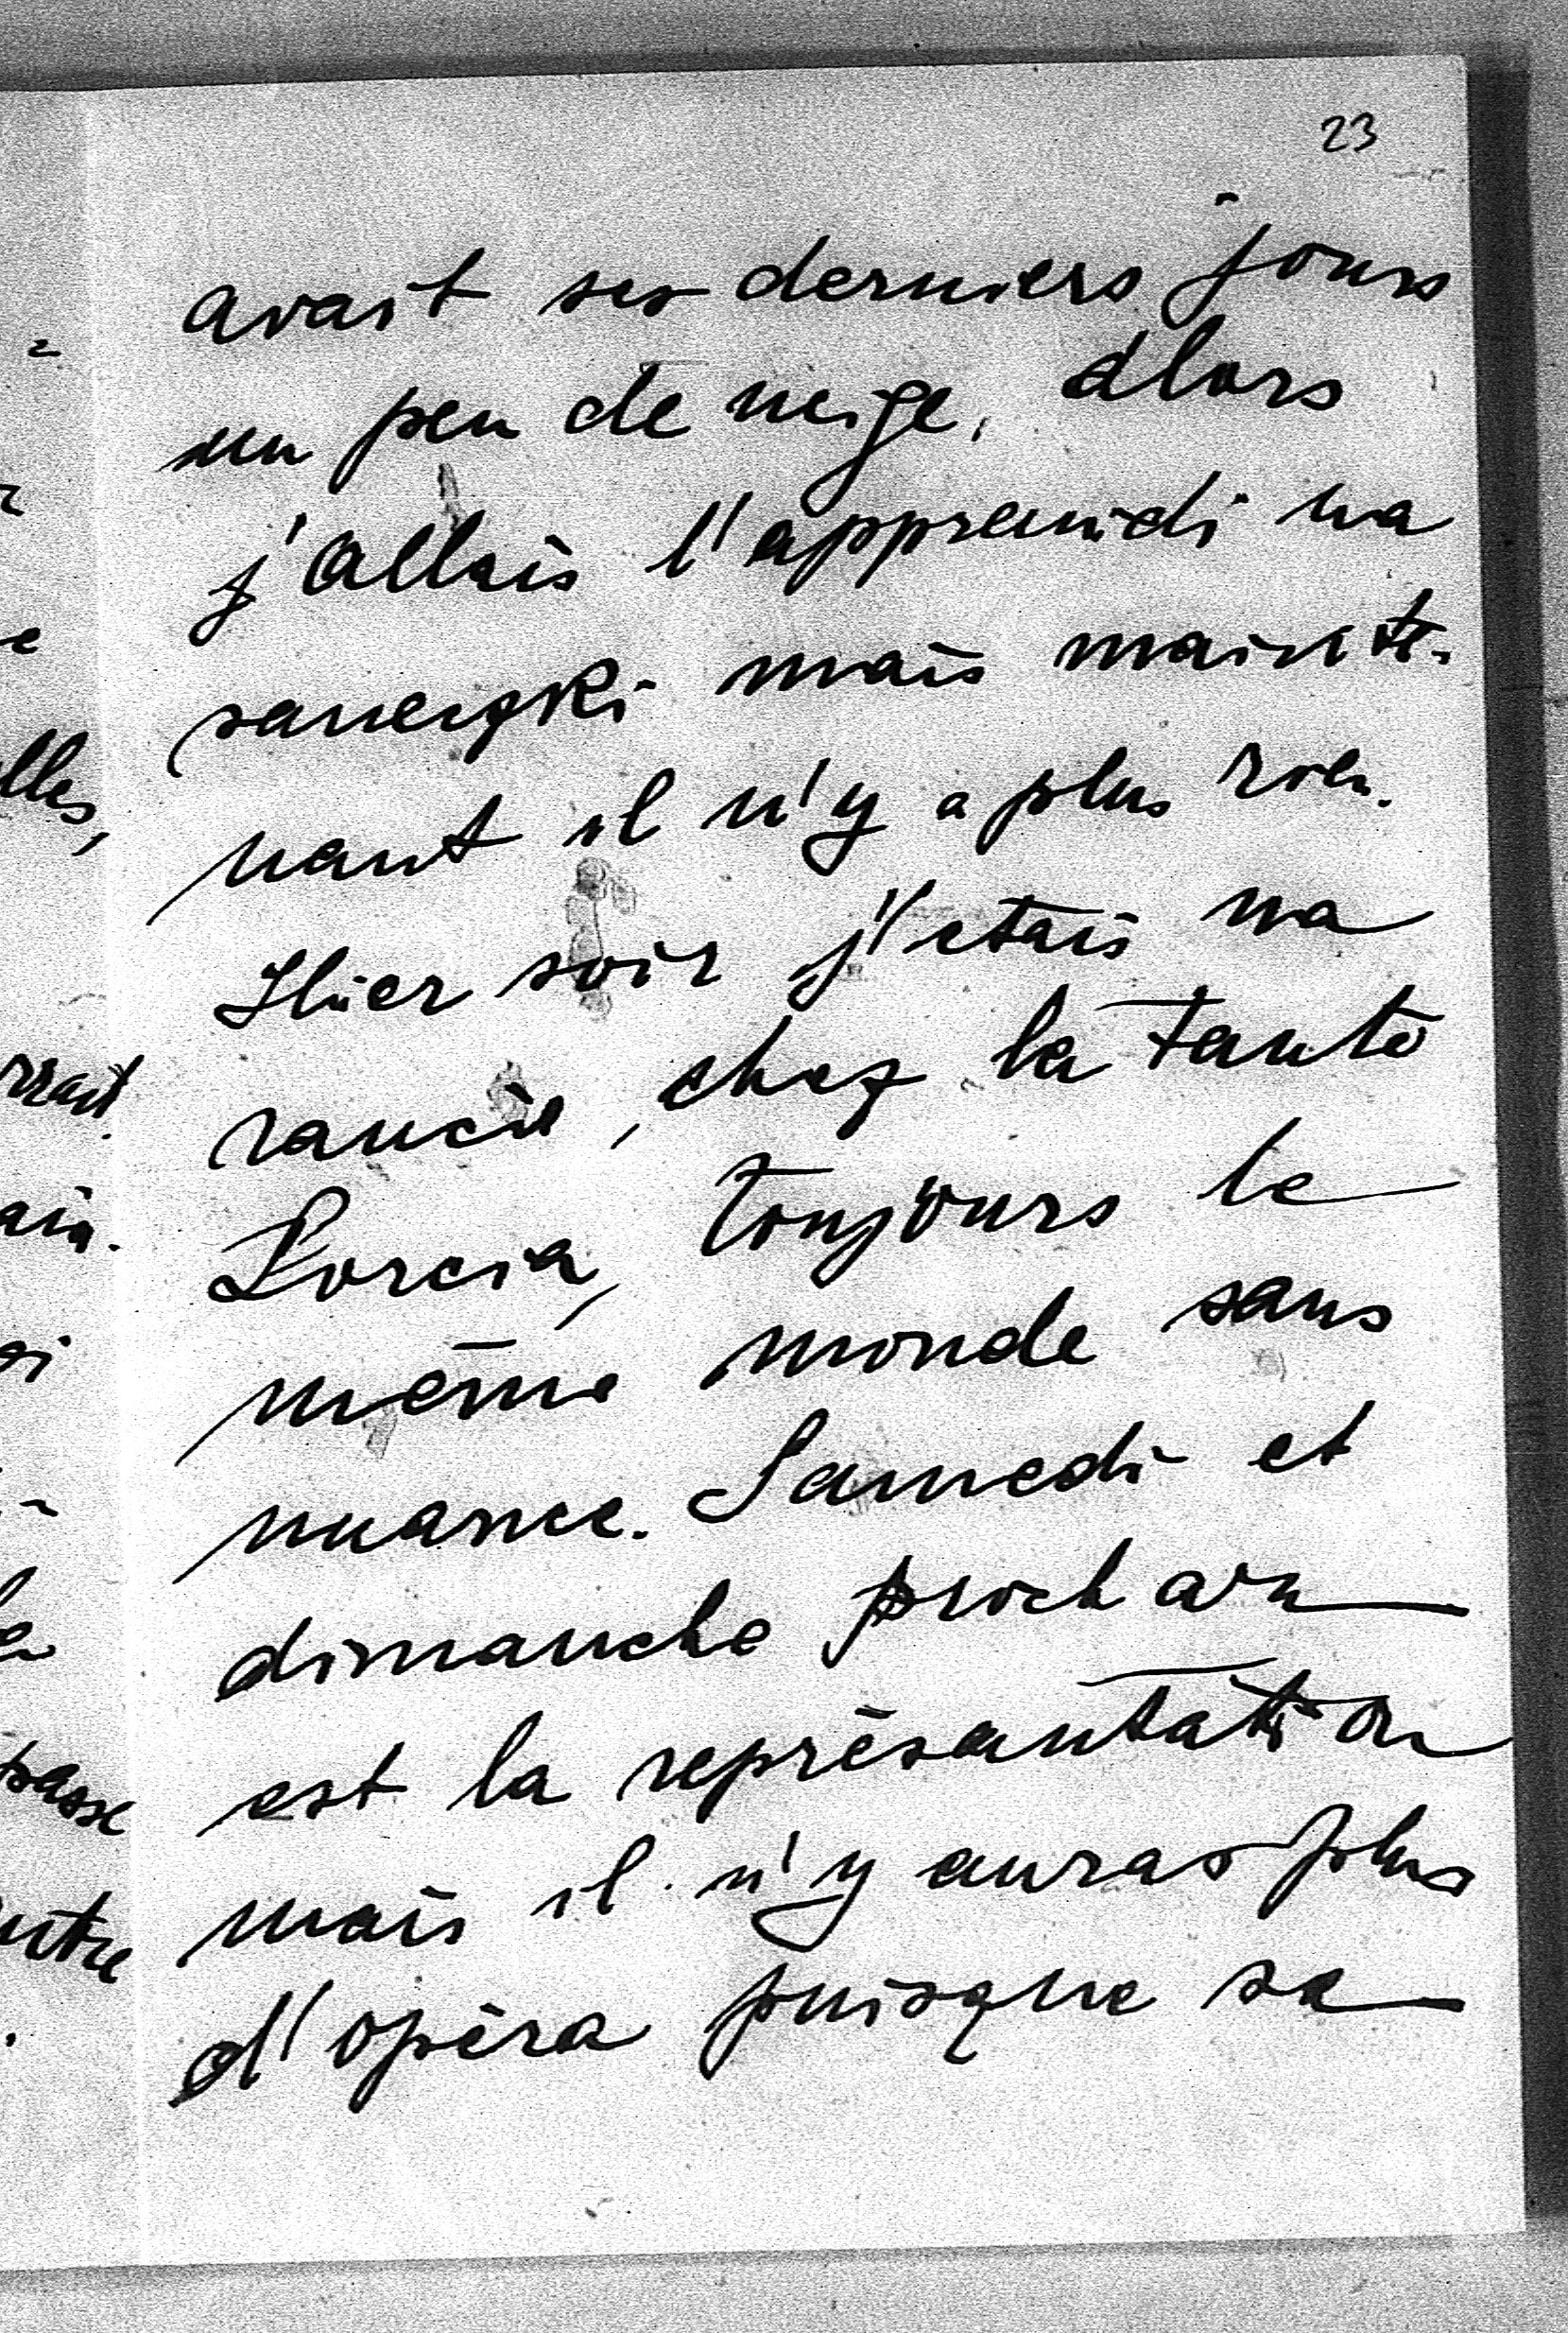 23
avait ses derniers jours
un peu de neige. Alors
j'allais l'appremidi na
saneczki mais mainte-
nant il n'y a plus rien.
Hier soir j'etais na
raucie, chez la tante
Lorcia, toujours le
même monde sans
nuance. Samedi et
dimanche prochain
est la représantation
mais il n'y auras plus
d'opéra puisque sa